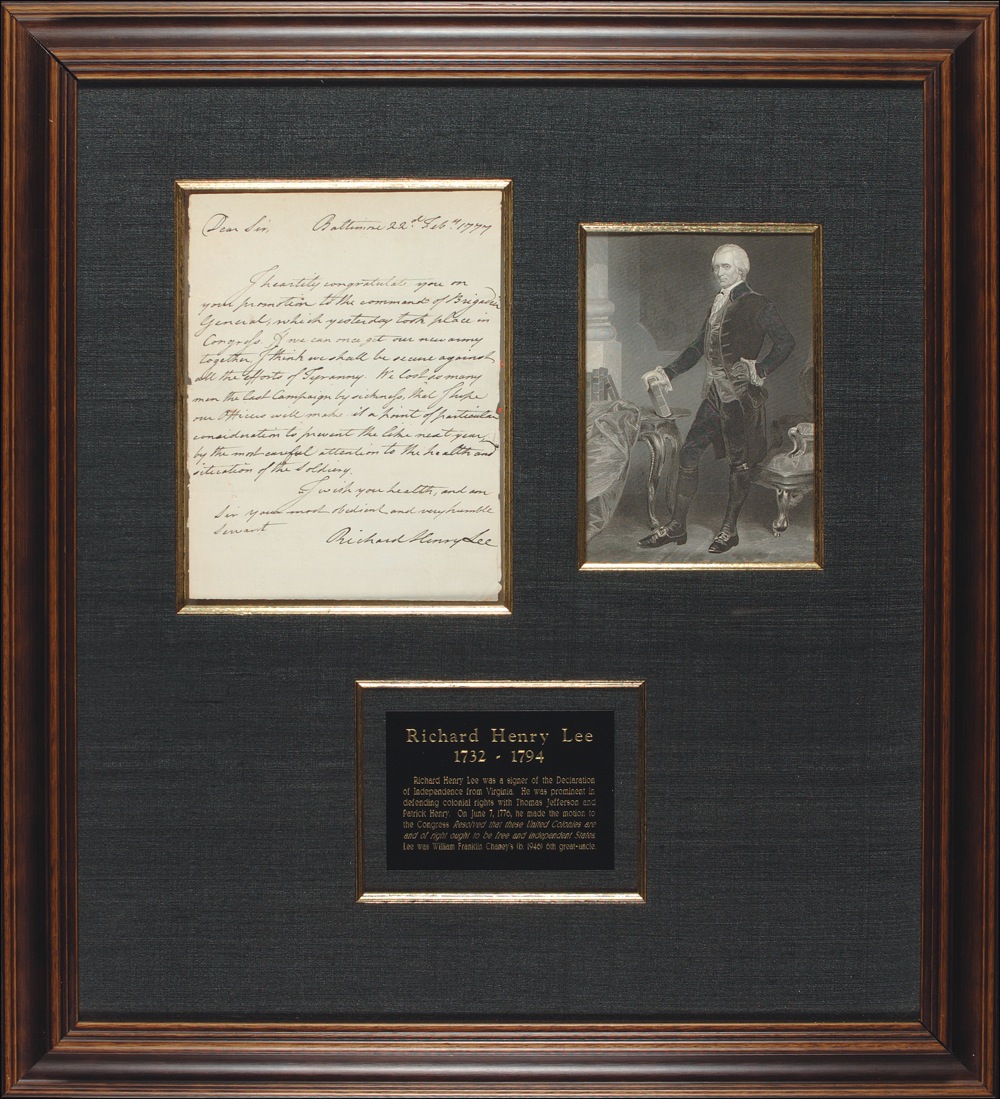 Dear Sir, Baltimore 22d Feby 1777
I heartily congratulate you on
your promotion to the command of Brigadier
General, which yesterday took place in
Congress. If we can once get our new army
together, I think we shall be secure against
all the efforts of Tyranny. We lost so many
men the last Campaign by sickness, that I hope
our Officers will make it a point of particular
consideration to prevent the like next year,
by the most careful attention to the health and
situation of the Soldiery.
I wish you health, and am
Sir your most obedient and very humble
Servant
Richard Henry Lee
Richard Henry Lee
1732 - 1794
Richard Henry Lee was a signer of the Declaration
of Independence from Virginia. He was prominent in
defending colonial rights with Thomas Jefferson and
Patrick Henry. On June 7, 1776, he made the motion to
the Congress Resolved that these United Colonies are
and of right ought to be free and independent States.
Lee was William Franklin Chaney's (b. 1946) 6th great-uncle.